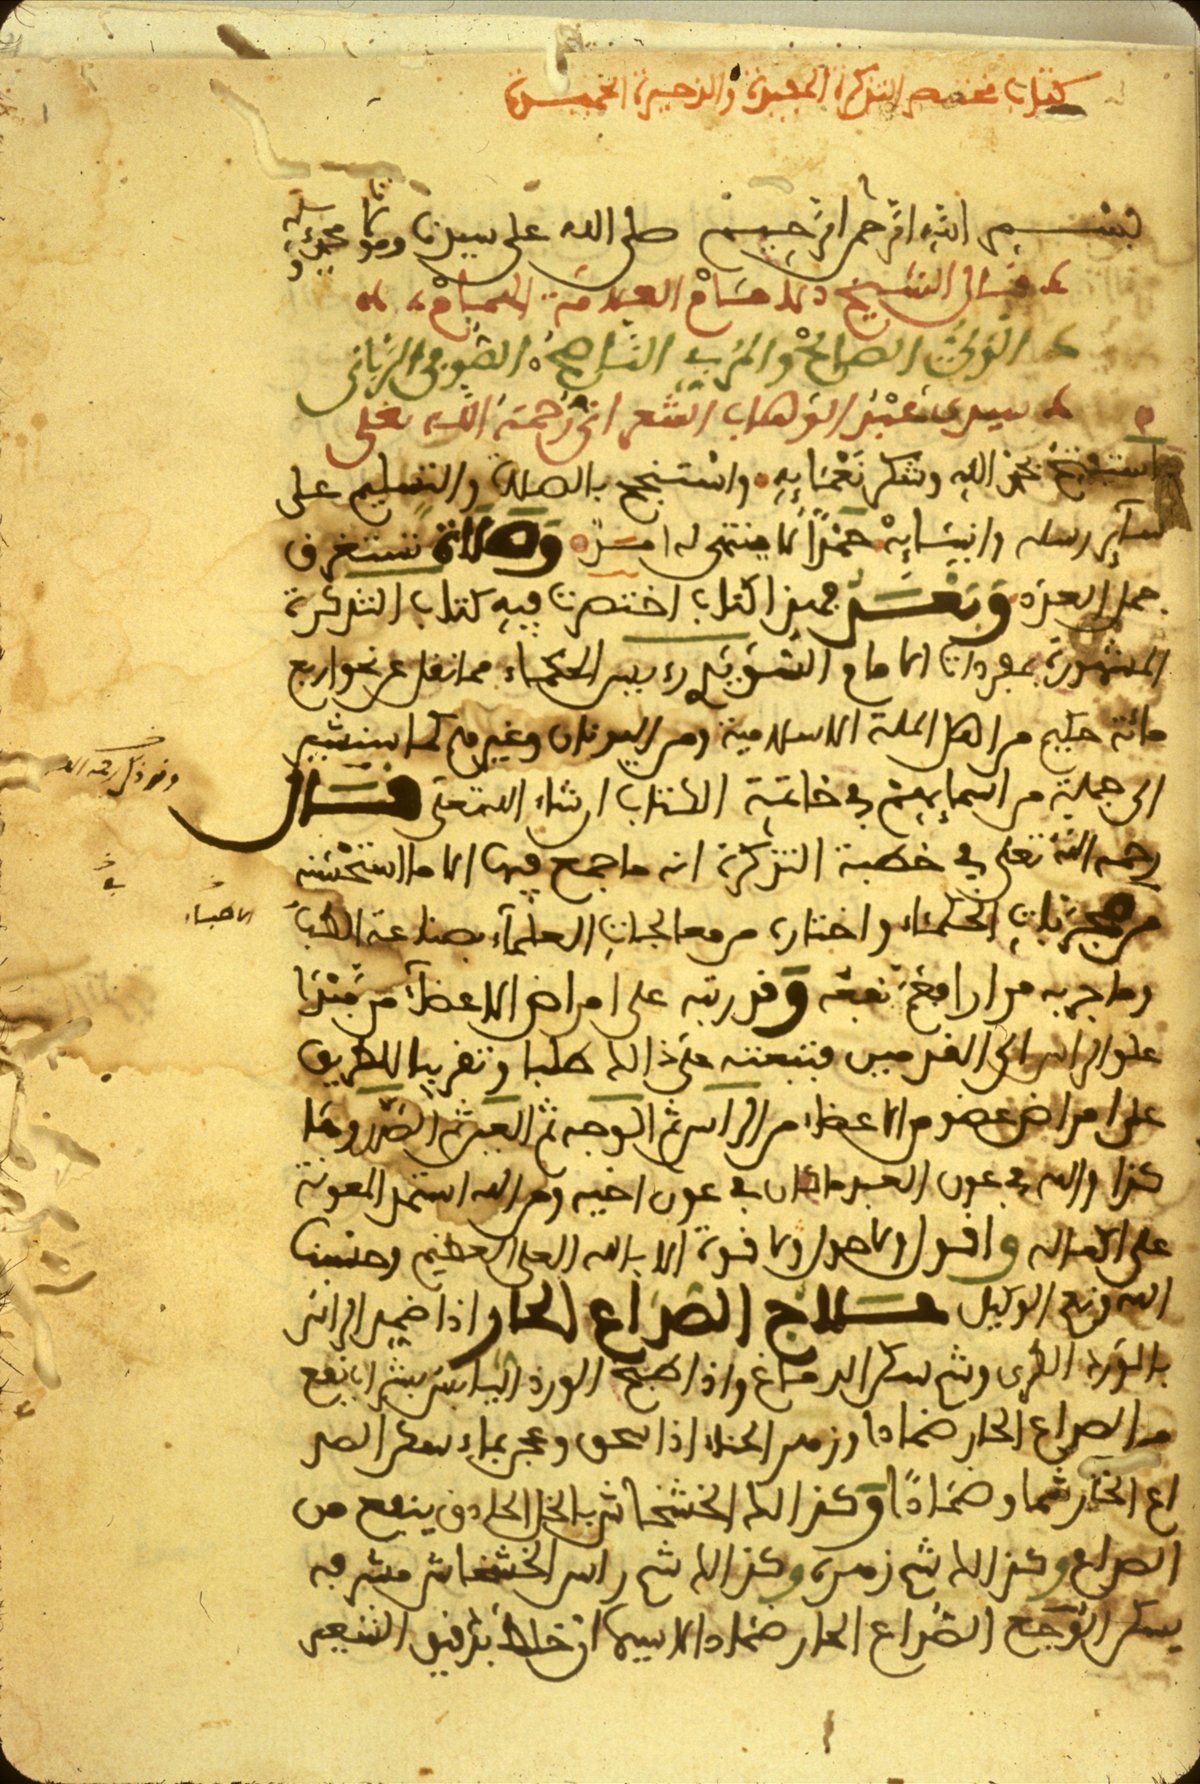 كتاب مختصر التذكرة المفيدة والذخيرة
بسم الله الرحمن الرحيم صلى الله على سيدنا ومولانا محمد وآله
قال الشيخ الامام العلامة الهمام
الولي الصالح والمربي الناصح الصوفي الرباني
سيدي عبد الوهاب الشعراني رحمه الله تعلى
استفتح بحمد الله وشكر نعمايه واستنجح بالصلاة والتسليم على
ساير رسله وانبيايه حمدا لا منتهى له وصلاة تستغرق
وبعد فهذا كتاب اختصرت فيه كتاب التذكرة
المشهورة بمفردات الامام السويدي رءيس الحكماء مما نقل عن نحو اربع
مائة حكيم من اهل الملة الاسلامية ومن اليونان وغيرهم كما سنشير
الى جملة من اسمايهم في خاتمة الكتاب ان شاء الله تعلى قال
رحمه الله تعلى في خطبة التذكرة انه ما جمع فيها الا ما استحسنه
من مجربات الحكماء واختاره من معالجات العلماء بصناعة الطب
وما جربه مرارا فصح نفعه وقد رتبه على امراض الاعضاء مبتديا
علو الراس الى القدمين فتبعته على ذالك طلبا وتقريبا للطريق
على امراض عضو من الاعضاء من الراس ثم الوجه ثم العين ثم الصدر وهكذا
كذا والله في عون العبد ما كان في عون اخيه ومن الله استمد المعونة
على اكماله واقول ولا حول ولا قوة الا بالله العلي العظيم وحسبنا
الله ونعم الوكيل علاج الصداع الحار اذا ضمد الراس
بالورد الطري وشم سكن الدماغ واذا طبخ الورد اليابس نفع
من الصداع الحار ضمادا وزهر الحناء اذا سحق وعجن بماء سكن الصد
اع الحار شما وضمادا وكذالك الخشخاش بالخل الحاذق ينفع من
الصداع وكذالك شم زهره وكذالك شم راس الخشخاش
يسكن الوجع الصداع الحار ضمادا لا سيما ان خلط بدقيق الشعير
وقوله رحمه الله
في
الاطباء